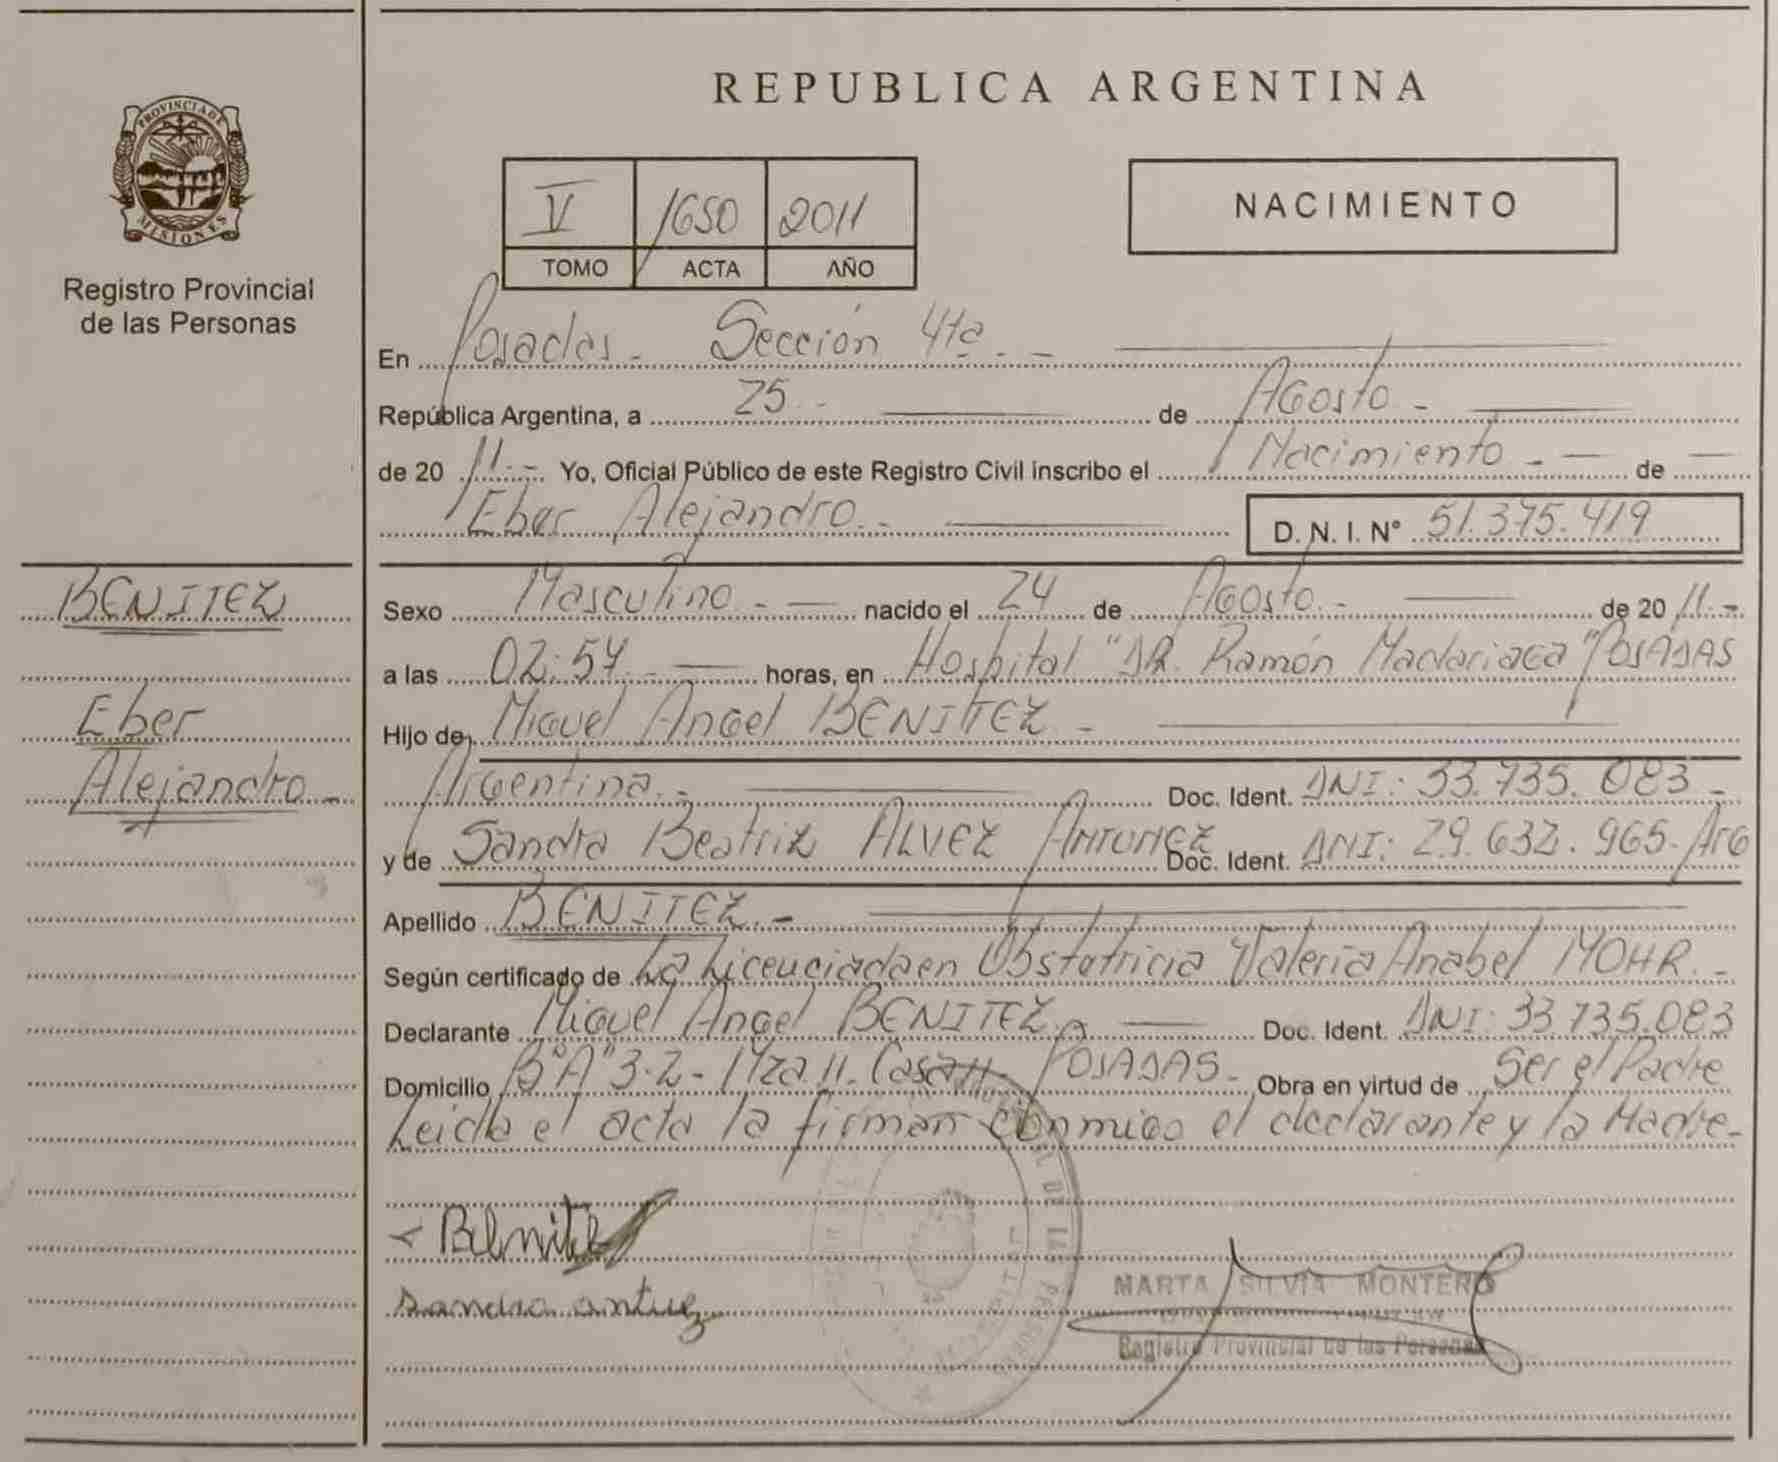 REPUBLICA ARGENTINA
PROVINCIA DE
MISIONES
Registro Provincial
de las Personas
V 1650 2011
TOMO ACTA AÑO
NACIMIENTO
En Posadas - Sección 4ta. -
República Argentina, a 25 - de Agosto -
de 20 11.- Yo, Oficial Público de este Registro Civil inscribo el Nacimiento - de
Eber Alejandro. - D. N. I. N° 51.375.419
BENITEZ
Eber
Alejandro -
Sexo Masculino - nacido el 24 de Agosto. - de 20 11. -
a las 02:54. horas, en Hospital "DR. Ramón Madariaga" POSADAS
Hijo de Miguel Angel BENITEZ -
Argentina. - Doc. Ident. DNI: 33.735.083 -
y de Sandra Beatriz ALVEZ ANTUNEZ Doc. Ident. DNI: 29.632.965. Arg
Apellido BENITEZ. -
Según certificado de La Licenciada en Obstetricia Valeria Anabel MOHR. -
Declarante Miguel Angel BENITEZ Doc. Ident. DNI: 33.735.083
Domicilio B° "A" 3-2 - Mza 11. Casa 11- POSADAS - Obra en virtud de Ser el Padre
Leida el acta la firman conmigo el declarante y la Madre -
Benitez
Sandra antuez
MARTA SILVIA MONTERO
Registro Provincial de las Personas